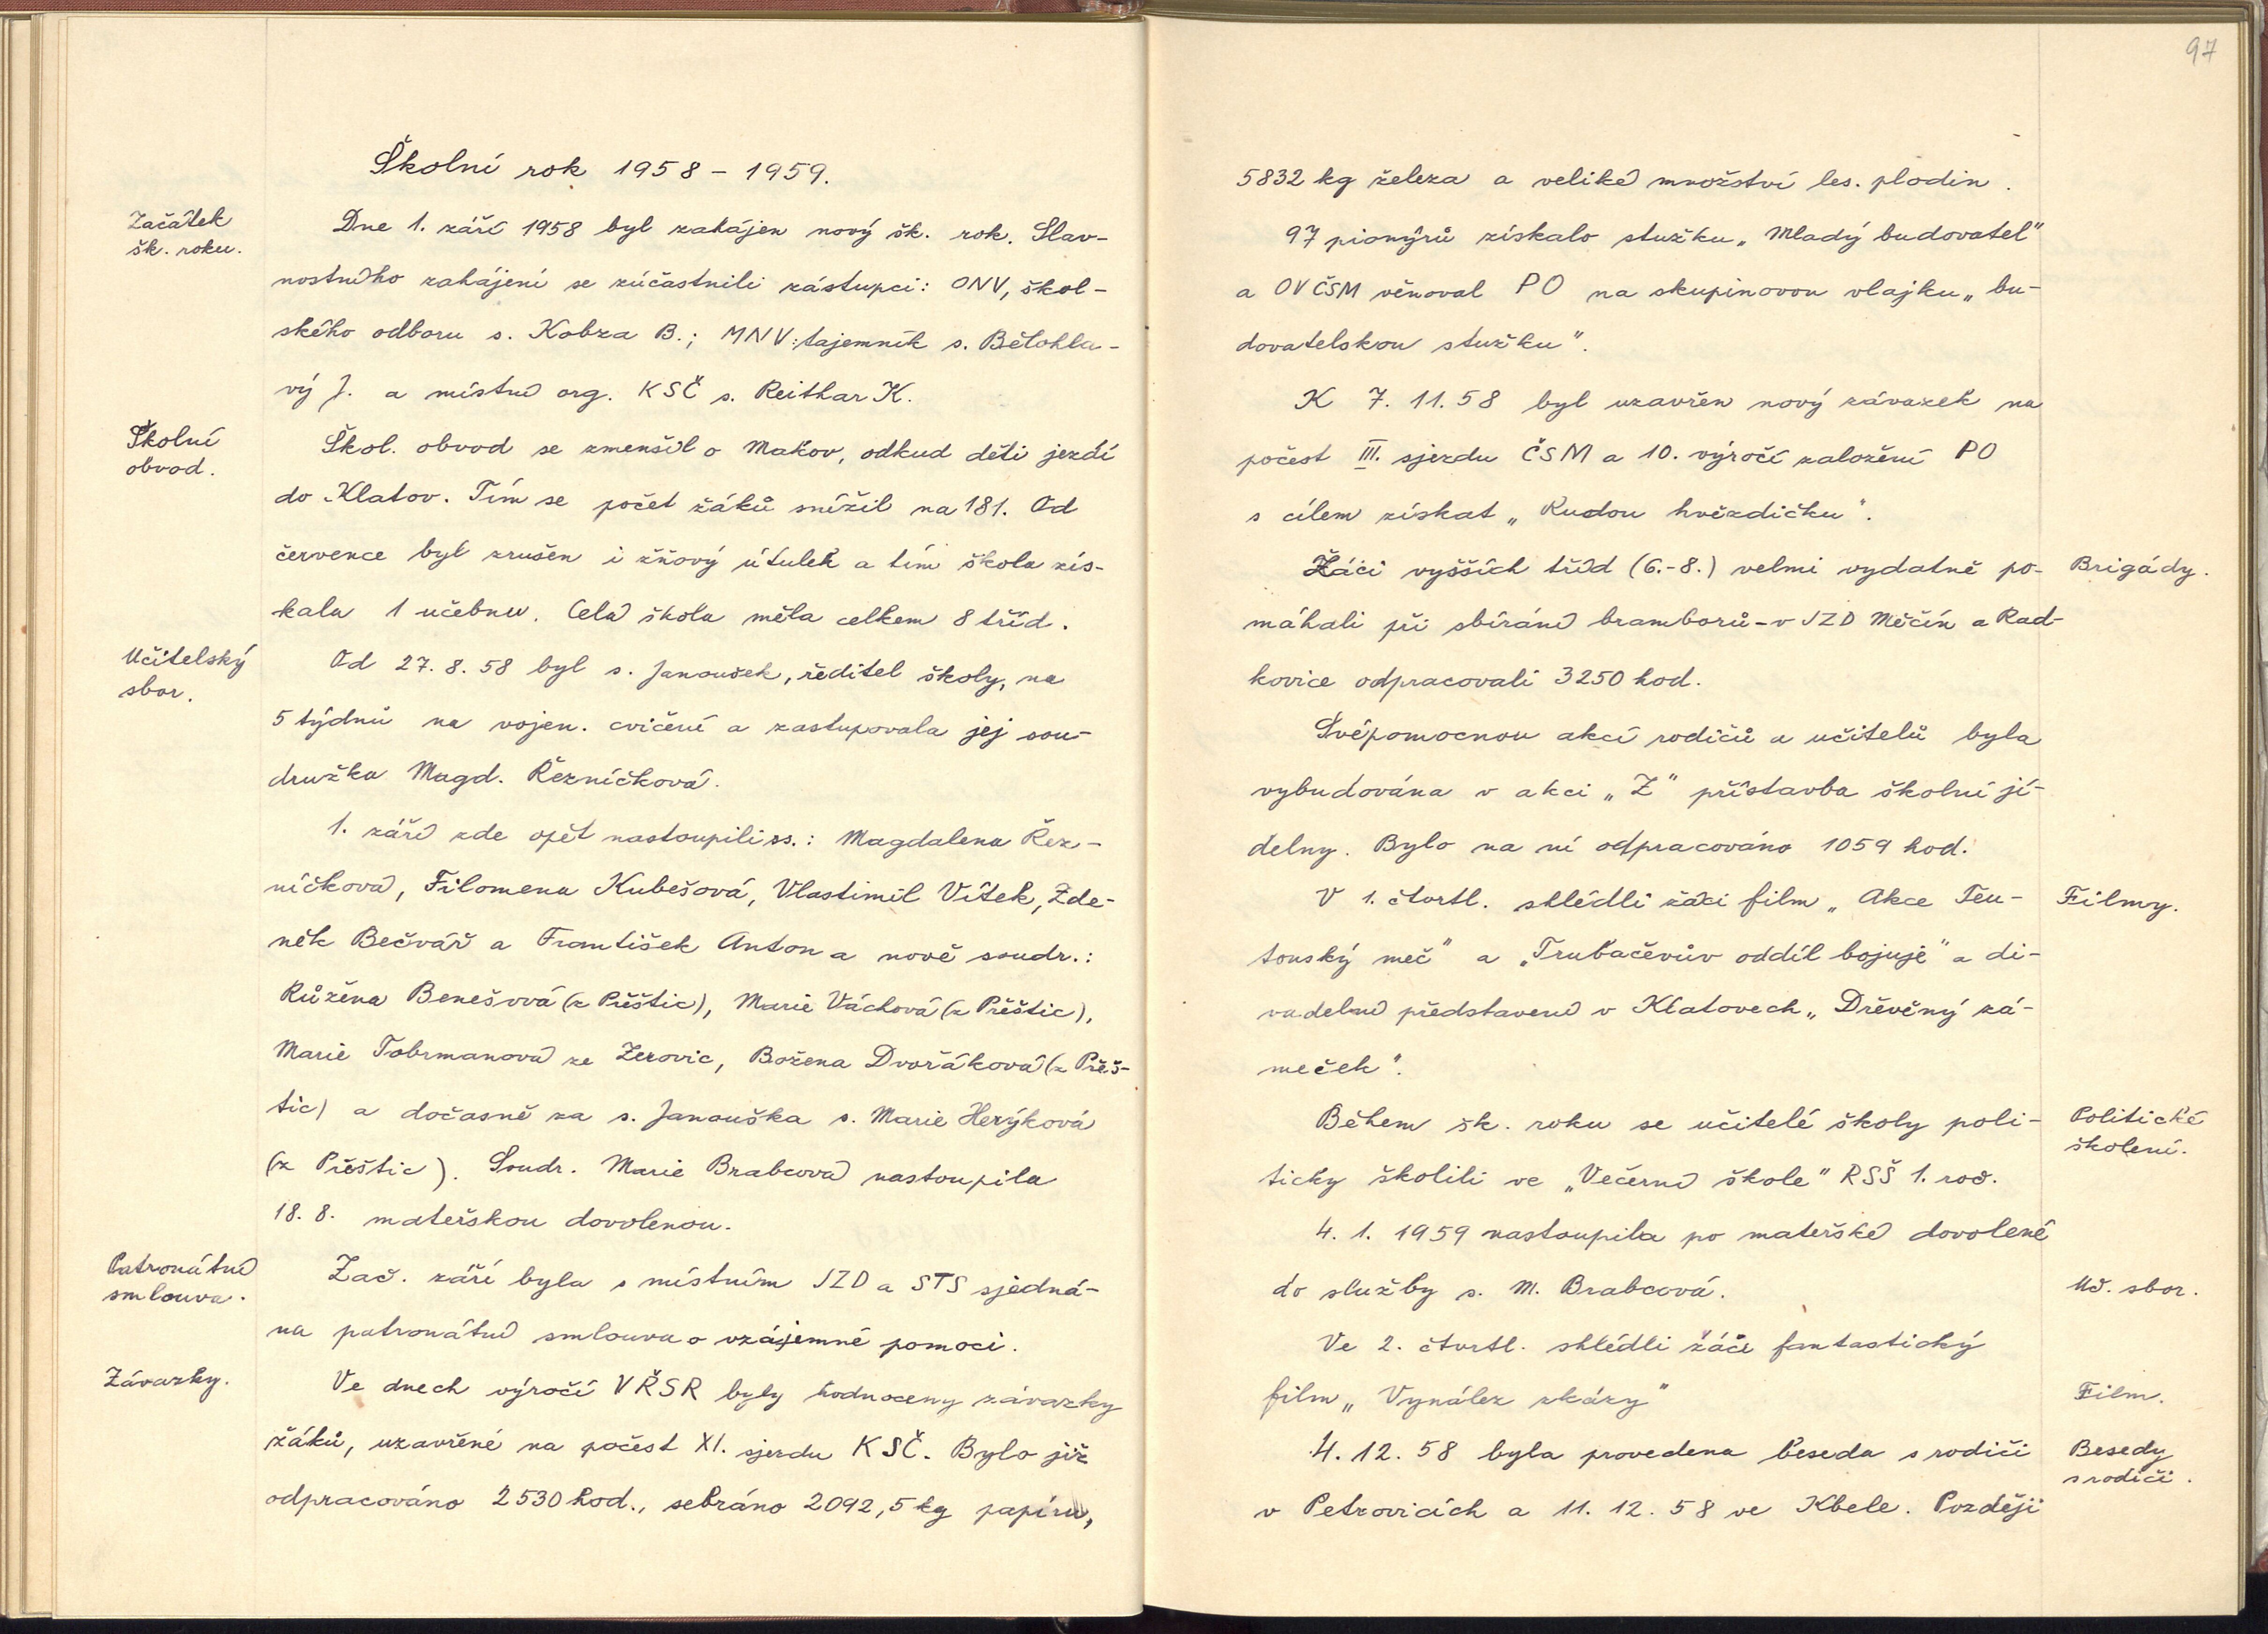 Školní rok 1958 – 1959.
Začátek
šk. roku.
Dne 1. září 1958 byl zahájen nový šk. rok. Slav-
nostního zahájení se zúčastnili zástupci: ONV, škol-
ského odboru s. Kobza B.; MNV: tajemník s. Bělohla-
vý J. a místní org. KSČ s. Reithar K.
Školní
obvod.
Škol. obvod se zmenšil o Makov, odkud děti jezdí
do Klatov. Tím se počet žáků snížil na 181. Od
července byl zrušen i žňový útulek a tím škola zís-
kala 1 učebnu. Celá škola měla celkem 8 tříd.
Učitelský
sbor.
Od 27. 8. 58 byl s. Janoušek, ředitel školy, na
5 týdnů na vojen. cvičení a zastupovala jej sou-
družka Magd. Řezníčková.
1. září zde opět nastoupili ss.: Magdalena Řez-
níčková, Filomena Kubešová, Vlastimil Vítek, Zde-
něk Bečvář a František Anton a nově soudr.:
Růžena Benešová (z Přeštic), Marie Váchová (z Přeštic),
Marie Tobrmanová ze Zerovic, Božena Dvořáková (z Přeš-
tic) a dočasně za s. Janouška s. Marie Herýková
(z Přeštic). Soudr. Marie Brabcová nastoupila
18. 8. mateřskou dovolenou.
Patronátní
smlouva.
Zač. září byla s místním JZD a STS sjedná-
na patronátní smlouva o vzájemné pomoci.
Závazky.
Ve dnech výročí VŘSR byly hodnoceny závazky
žáků, uzavřené na počest XI. sjezdu KSČ. Bylo již
odpracováno 2530 hod., sebráno 2092,5 kg papíru,
97
5832 kg železa a veliké množství les. plodin.
97 pionýrů získalo stužku „Mladý budovatel"
a OV ČSM věnoval PO na skupinovou vlajku „bu-
dovatelskou stužku".
K 7. 11. 58 byl uzavřen nový závazek na
počest III. sjezdu ČSM a 10. výročí založení PO
s cílem získat „Rudou hvězdičku".
Žáci vyšších tříd (6.-8.) velmi vydatně po-
Brigády.
máhali při sbírání bramborů - v JZD Měčín a Rad-
kovice odpracovali 3250 hod.
Svépomocnou akcí rodičů a učitelů byla
vybudována v akci „Z" přístavba školní jí-
delny. Bylo na ní odpracováno 1059 hod.
V 1. čtvrtl. shlédli žáci film „Akce Teu-
Filmy.
tonský meč" a „Trubačěvův oddíl bojuje" a di-
vadelní představení v Klatovech „Dřevěný zá-
meček".
Během šk. roku se učitelé školy poli-
Politické
školení.
ticky školili ve „Večerní škole" RSŠ 1. roč.
4. 1. 1959 nastoupila po mateřské dovolené
do služby s. M. Brabcová.
Uč. sbor.
Ve 2. čtvrtl. shlédli žáci fantastický
film „Vynález zkázy"
Film.
4. 12. 58 byla provedena beseda s rodiči
Besedy
s rodiči.
v Petrovicích a 11. 12. 58 ve Kbele. Později